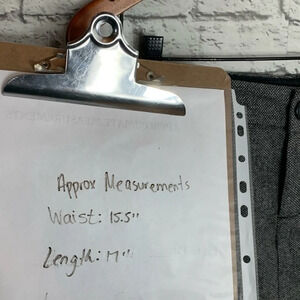 Approx Measurements
Waist: 15.5"
Length: 17"